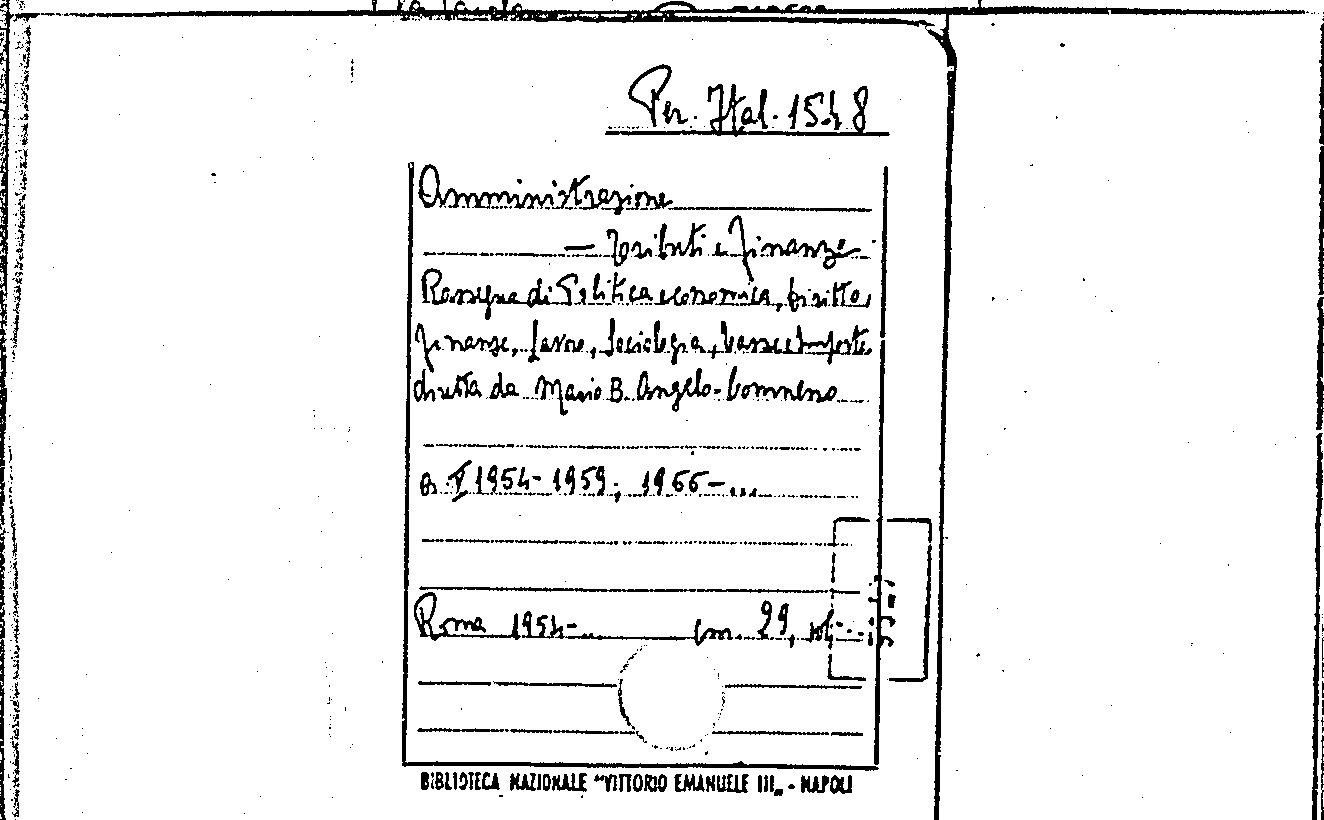 Per. Ital. 1548
Amministrazione
— Tributi e Finanze
Rassegna di Politica economica, Diritto,
Finanze, Lavoro, Sociologia, Tasse e Imposte
diretta da Mario B. Angelo-Comneno
a. V 1954-1959; 1966-...
Roma 1954-... Cm. 29,
BIBLIOTECA NAZIONALE "VITTORIO EMANUELE III„ - NAPOLI